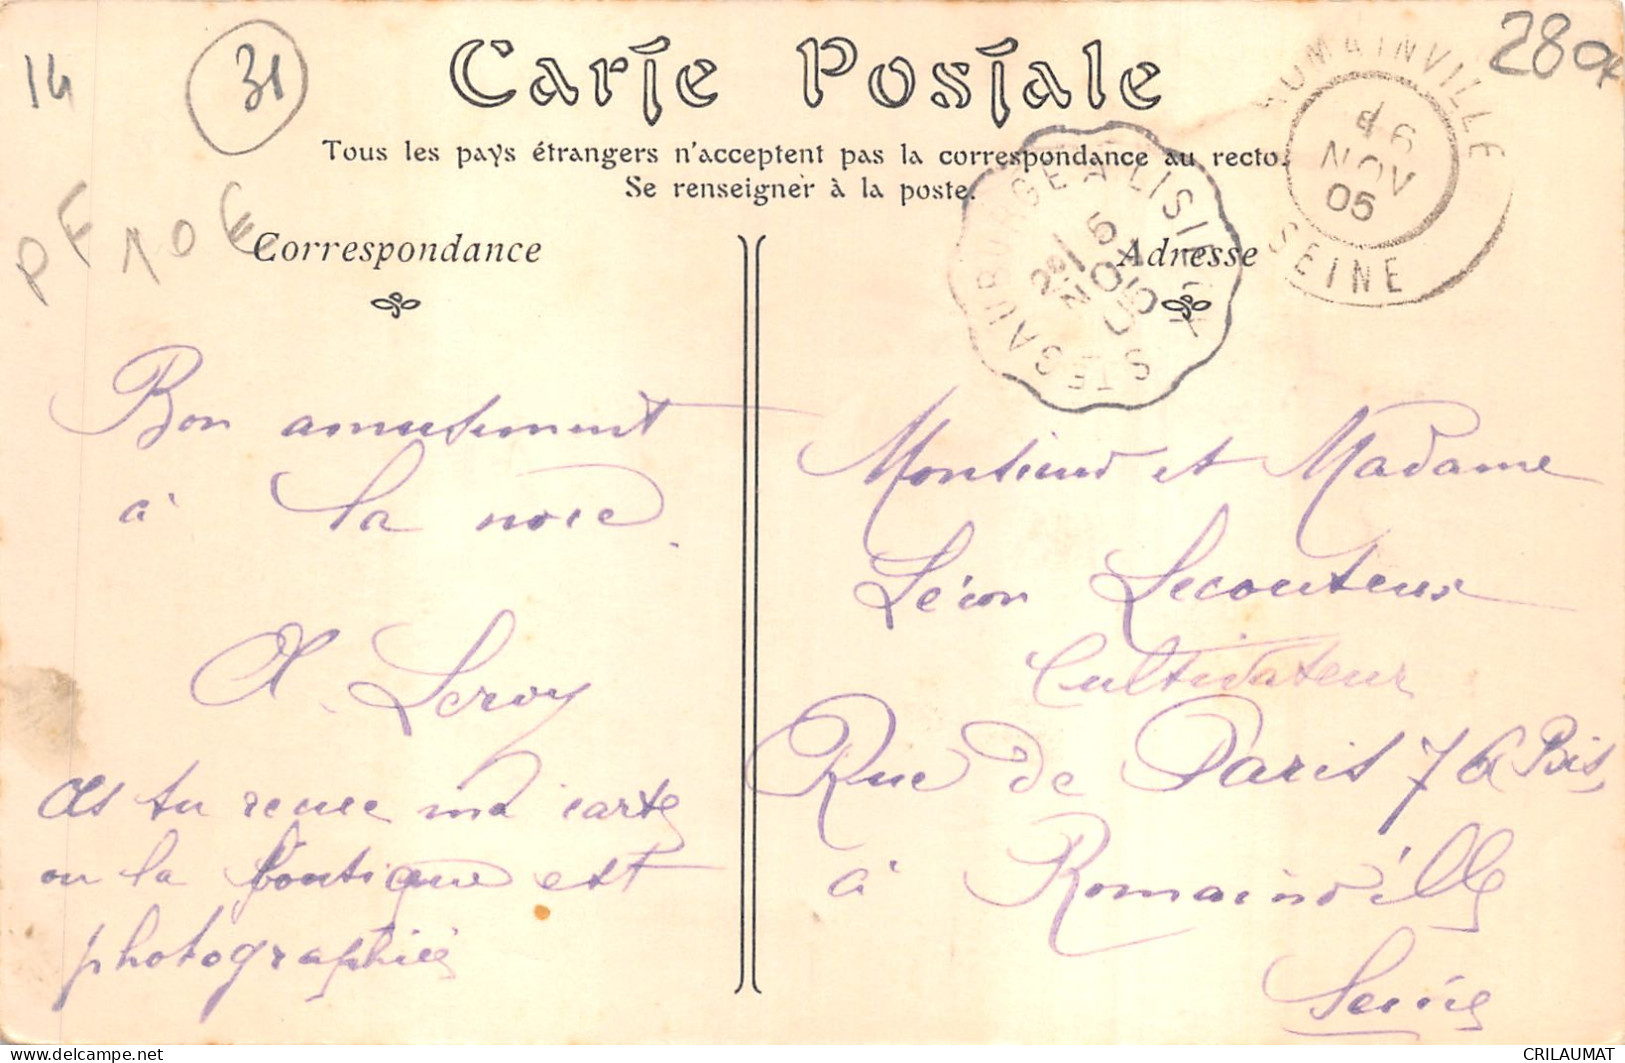 14
31
280x
PF 10E
Carte Postale
Tous les pays étrangers n'acceptent pas la correspondance au recto.
Se renseigner à la poste.
Correspondance
Bon amusement
à la noce.
A. Leroy
As tu recue ma carte
ou la boutique est
photographiée
Adresse
Monsieur et Madame
Léon Lecouteux
Cultivateur
Rue de Paris 76 Bis,
à Romainville
Seine
STE GAUBURGE A LISIEUX
5
NOV
05
ROMAINVILLE
6
NOV
05
SEINE
CRILAUMAT